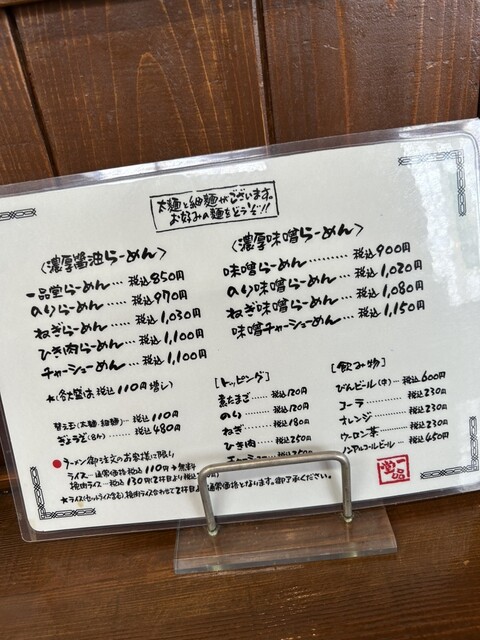 太麺と細麺がございます。
お好みの麺をどうぞ!!
〈濃厚醤油らーめん〉
一品堂らーめん… 税込850円
のりらーめん…… 税込970円
ねぎらーめん…… 税込1,030円
ひき肉らーめん… 税込1,100円
チャーシューめん… 税込1,100円
*(各大盛は税込110円増し)
替え玉(太麺・細麺)… 税込110円
ぎょうざ(8ヶ)…… 税込480円
●ラーメン御注文のお客様に限り
ライス… 通常価格 税込110円
挽肉ライス… 税込130円(2杯目より税込
〈濃厚味噌らーめん〉
味噌らーめん……… 税込900円
のり味噌らーめん… 税込1,020円
ねぎ味噌らーめん… 税込1,080円
味噌チャーシューめん… 税込1,150円
[トッピング]
煮たまご… 税込120円
のり…… 税込120円
ねぎ…… 税込180円
ひき肉…… 税込250円
[飲み物]
びんビール(中)… 税込600円
コーラ…… 税込230円
オレンジ…… 税込230円
ウーロン茶…… 税込230円
ノンアルコールビール… 税込450円
*ライス(セットライス含む)、挽肉ライス合わせて2杯目より通常価格となります。御了承ください。
一品堂